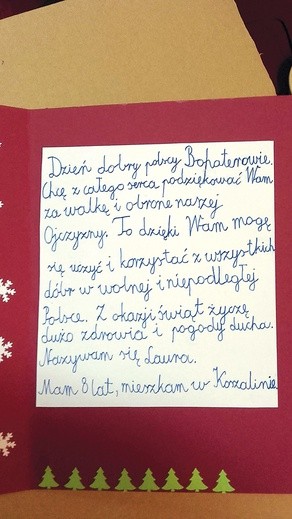 Dzień dobry polscy Bohaterowie.
Chcę z całego serca podziękować Wam
za walkę i obronę naszej
Ojczyzny. To dzięki Wam mogę
się uczyć i korzystać z wszystkich
dóbr w wolnej i niepodległej
Polsce. Z okazji świąt życzę
dużo zdrowia i pogody ducha.
Nazywam się Laura.
Mam 8 lat, mieszkam w Koszalinie